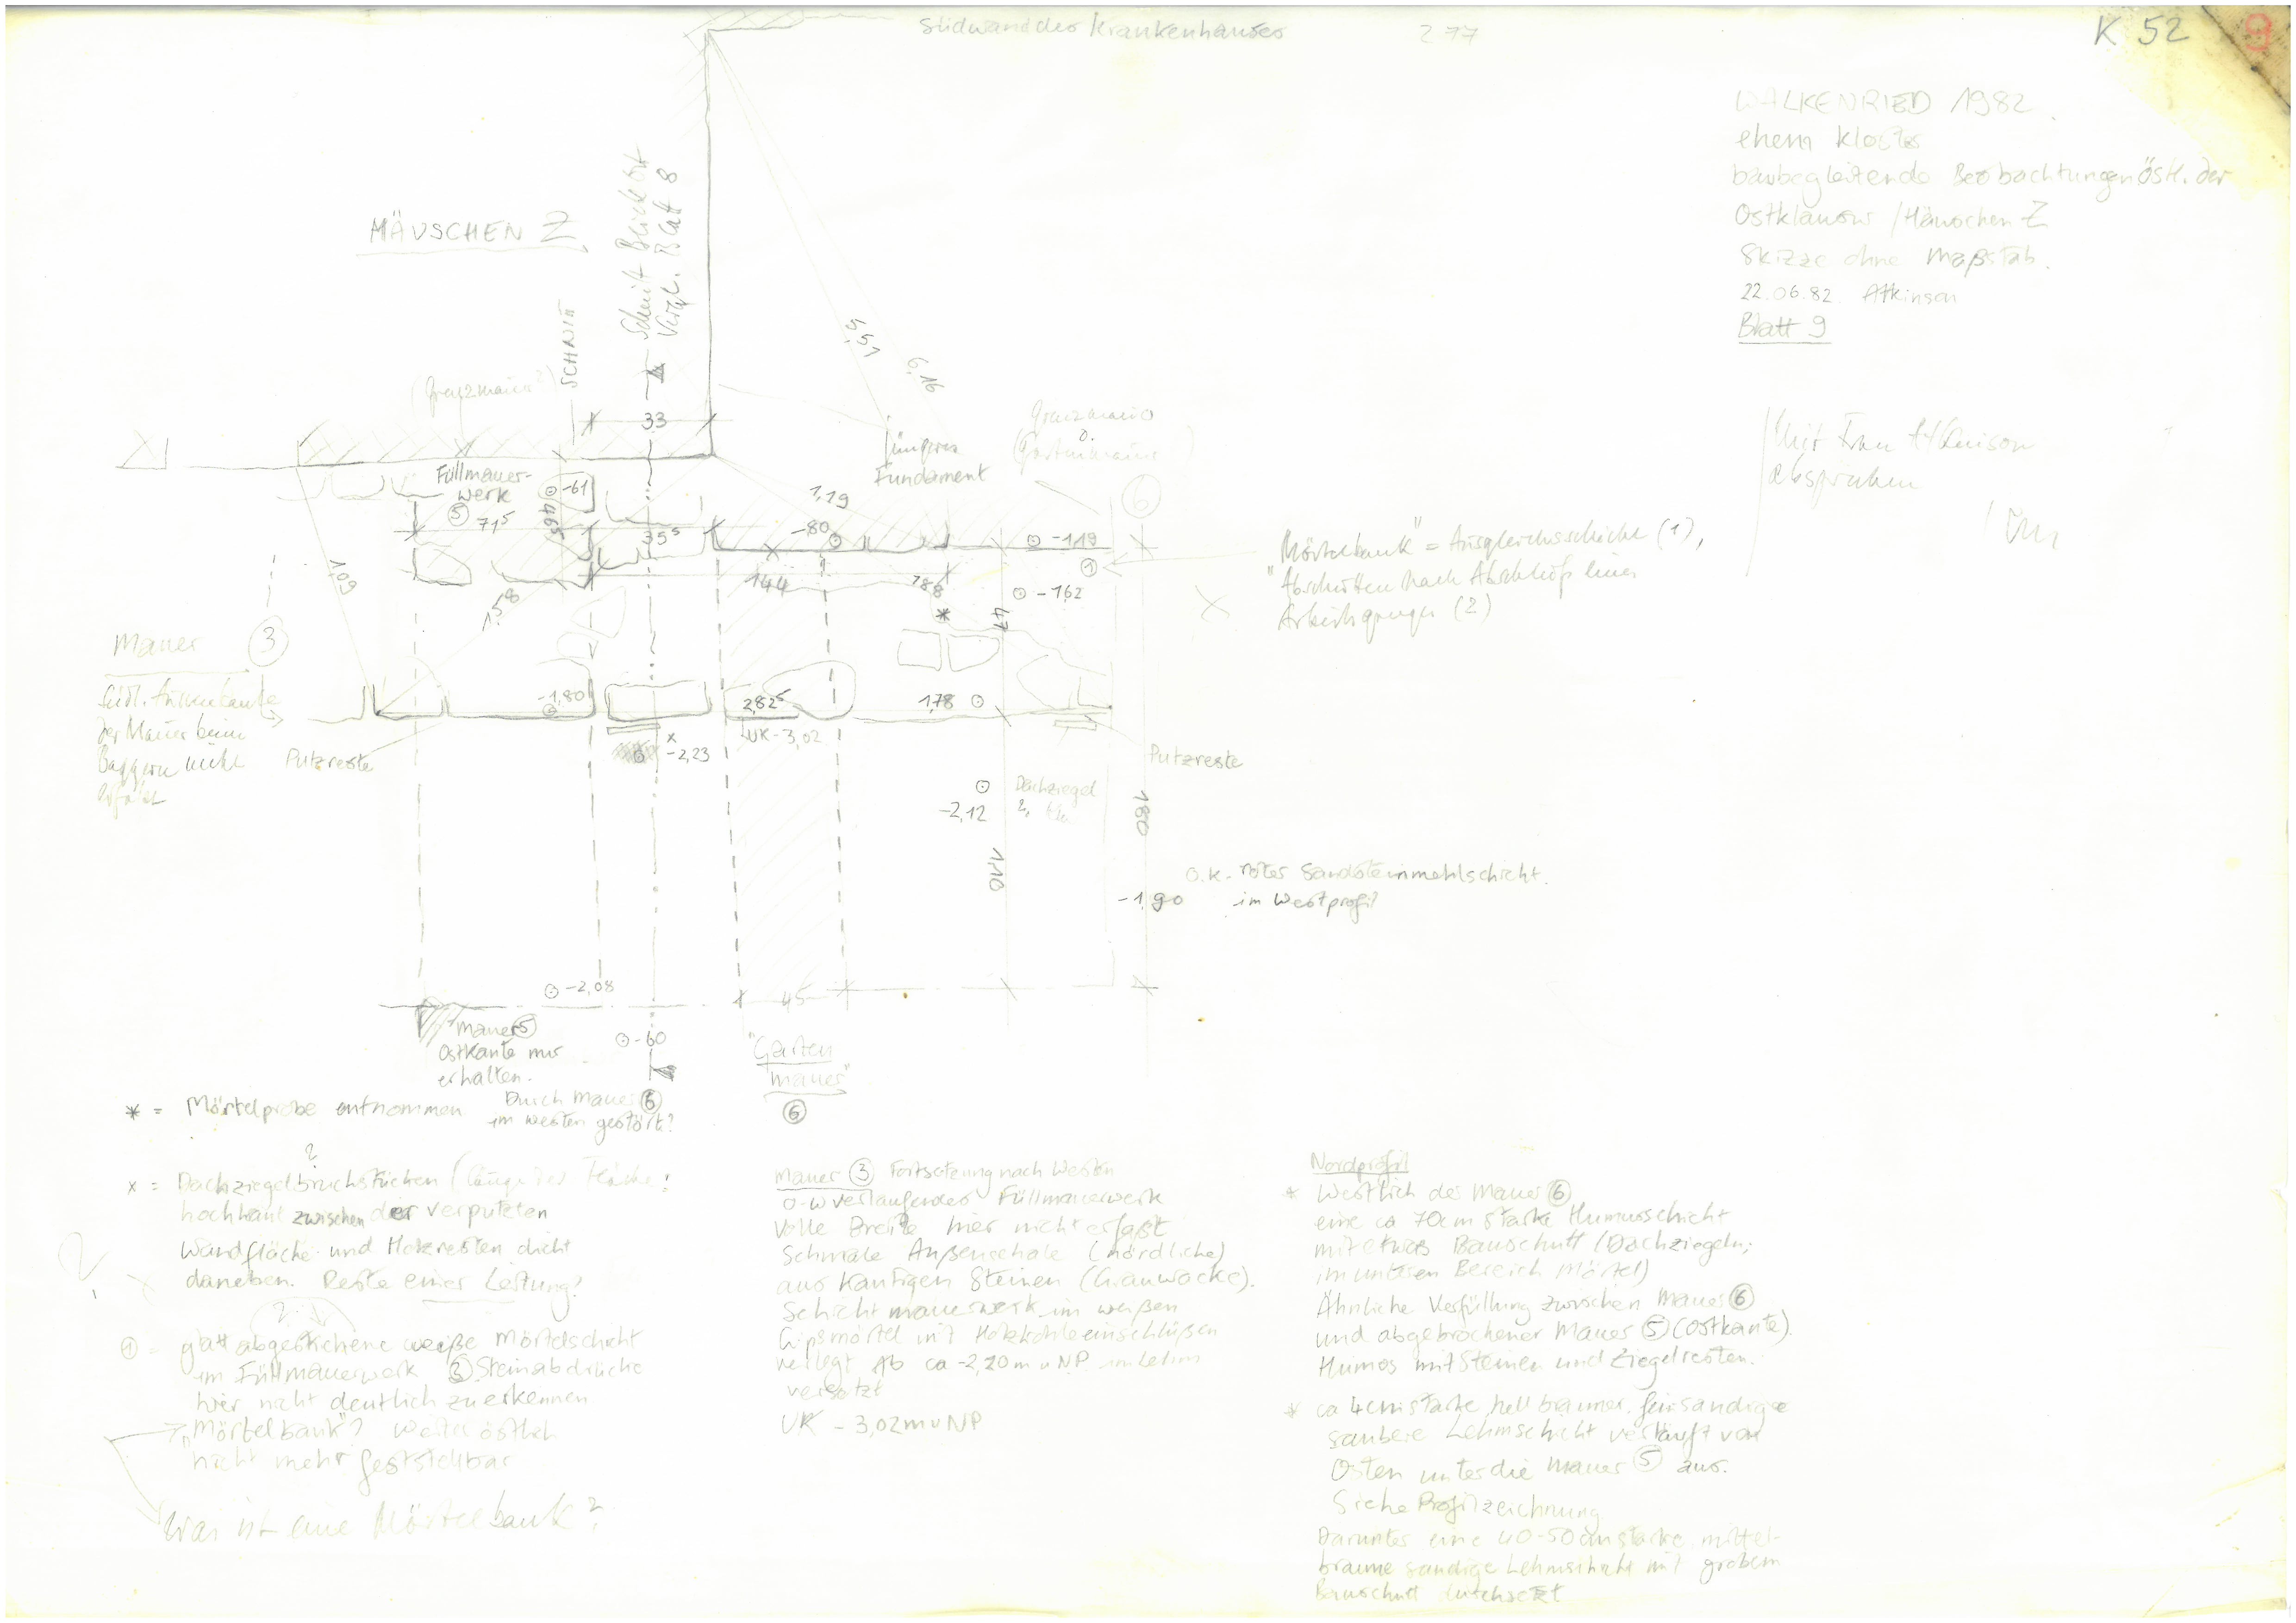 Südwand des Krankenhauses
277
K 52
9
WALKENRIED 1982
ehem Kloster
baubegleitende Beobachtungen östl. der
Ostklausur / Häuschen Z
Skizze ohne Maßstab.
22.06.82. Atkinson
Blatt 9
Mit Frau Atkinson
absprechen
HÄUSCHEN Z
SCHNITT
Schnitt Blick Ost
Vergl. Blatt 8
(Grenzmauer?)
33
5,51
6,16
jüngeres
Fundament
Grenzmauer
o.
(Gartenmauer)
Füllmauer-
werk
5
71⁵
-61
46⁵
35⁵
1,19
-80
-1,19
6
1
144
188
-1,62
47
*
1,09
1,58
"Mörtelbank" = Ausgleichsschicht (1),
"Abschotten nach Abschluß eines
Arbeitsganges (2)
Mauer 3
südl. Außenkante
der Mauer beim
Baggern nicht
erfaßt
Putzreste
-1,80
2,82⁵
UK-3,02
1,78
x
-2,23
Putzreste
-2,12
Dachziegel
180
1,10
O.K. roter Sandsteinmehlschicht.
-1,90 im Westprofil
-2,08
45
Mauer 5
Ostkante nur
erhalten.
-60
"Garten
mauer"
6
* = Mörtelprobe entnommen
Durch Mauer 6
im Westen gestört?
?
x = Dachziegelbruchstücken (Länge der Fläche!
hochkant zwischen der verputzten
Wandfläche und Holzresten dicht
daneben. Reste einer Leitung?
?
1 = glatt abgestrichene weiße Mörtelschicht
im Füllmauerwerk 3 Steinabdrücke
hier nicht deutlich zu erkennen
"Mörtelbank"? weiter östlich
nicht mehr feststellbar
Was ist eine Mörtelbank?
Mauer 3 Fortsetzung nach Westen
O-W verlaufendes Füllmauerwerk
Volle Breite hier nicht erfaßt
Schmale Außenschale (nördliche)
aus kantigen Steinen (Grauwacke).
Schichtmauerwerk im weißen
Gipsmörtel mit Holzkohleeinschlüßen
verlegt Ab ca -2,20 m u NP im Lehm
versetzt
UK - 3,02 m u NP
Nordprofil
* Westlich der Mauer 6
eine ca 70cm starke Humusschicht
mit etwas Bauschutt (Dachziegeln;
im unteren Bereich Mörtel)
Ähnliche Verfüllung zwischen Mauer 6
und abgebrochener Mauer 5 (Ostkante).
Humos mit Steinen und Ziegelresten.
* ca 4cm starke hellbrauner, feinsandige
saubere Lehmschicht verläuft von
Osten unter die Mauer 5 aus.
Siehe Profilzeichnung
Darunter eine 40-50cm starke mittel-
braune sandige Lehmschicht mit grobem
Bauschutt durchsetzt